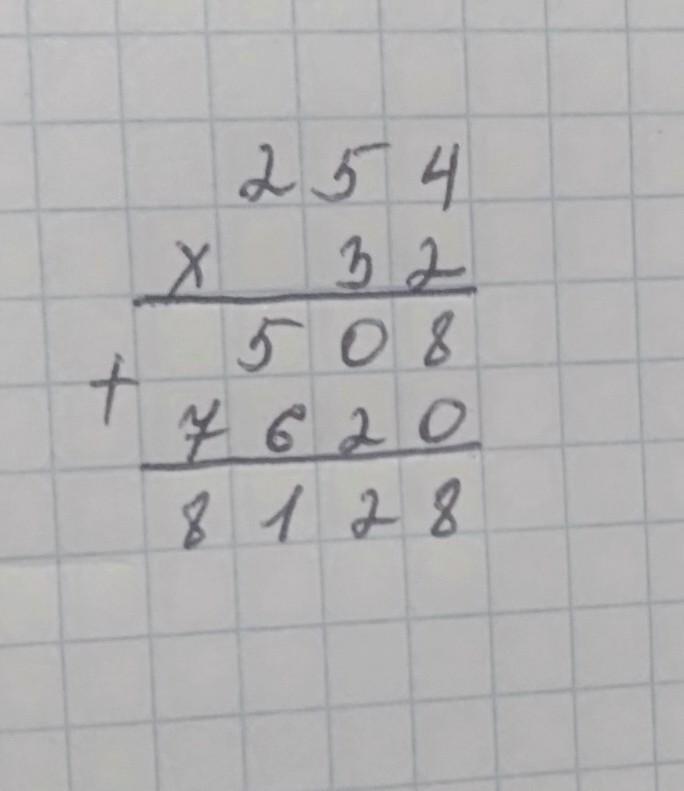 254
× 32
508
+
7620
8128